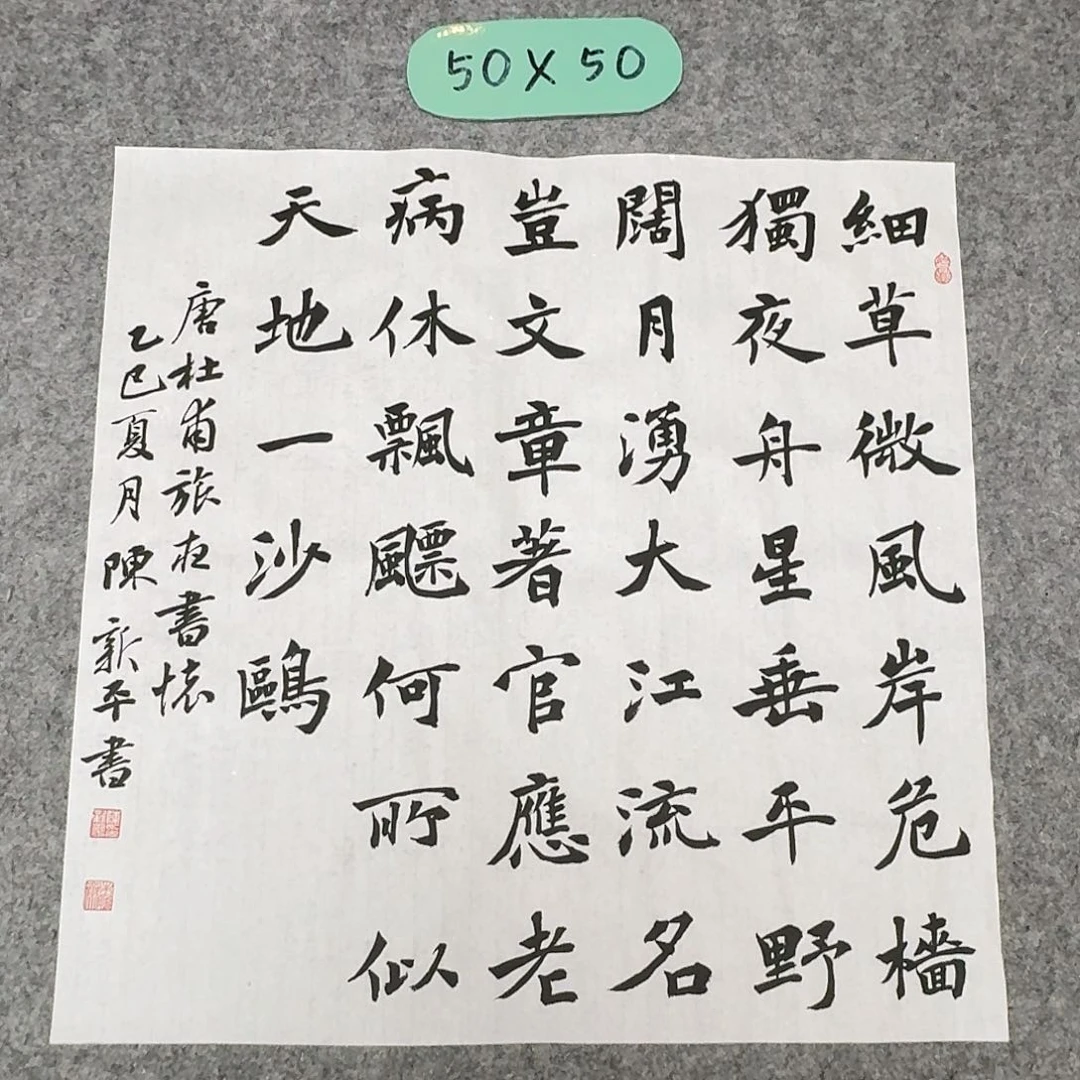 50X50
細草微風岸危檣
獨夜舟星垂平野
闊月湧大江流名
豈文章著官應老
病休飄飄何所似
天地一沙鷗
唐杜甫旅夜書懷
乙巳夏月陳新平書